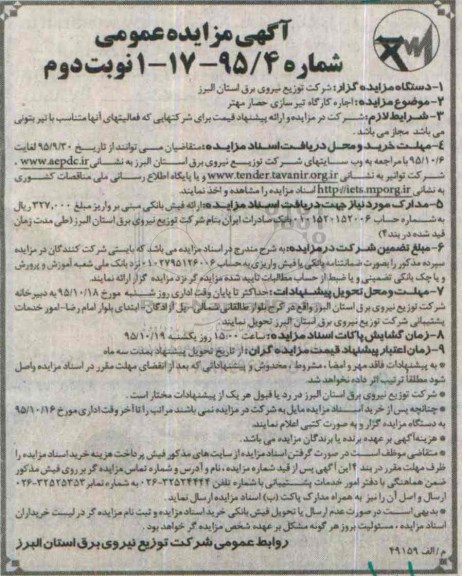 آگهی مزایده عمومی
شماره ۹۵/۴-۱۷-۱ نوبت دوم
۱-دستگاه مزایده گزار: شرکت توزیع نیروی برق استان البرز
۲-موضوع مزایده: اجاره کارگاه تیر سازی حصار مهتر
۳- شرایط لازم: شرکت در مزایده و ارائه پیشنهاد قیمت برای شرکتهایی که فعالیتهای آنها متناسب با تیر بتونی
می باشد مجاز می باشد.
۴-مهلت خرید و محل دریافت اسناد مزایده: متقاضیان می توانند از تاریخ ۹۵/۹/۳۰ لغایت
۹۵/۱۰/۶ با مراجعه به وب سایتهای شرکت توزیع نیروی برق استان البرز به نشانی www.aepdc.ir ،
شرکت توانیر به نشانی www.tender.tavanir.org.ir و یا پایگاه اطلاع رسانی ملی مناقصات کشوری
به نشانی http://iets.mporg.ir اسناد مزایده را مشاهده و اخذ نمایند.
۵-مدارک مورد نیاز جهت دریافت اسناد مزایده: ارائه فیش بانکی مبنی بر واریز مبلغ ۳۲۷,۰۰۰ ریال
به شماره حساب ۰۱۰۱۵۲۰۱۵۲۰۰۶ بانک صادرات ایران بنام شرکت توزیع نیروی برق استان البرز (طی مدت زمان
قید شده در بند۴)
۶-مبلغ تضمین شرکت در مزایده: به شرح مندرج در اسناد مزایده می باشد که بایستی شرکت کنندگان در مزایده
سپرده مذکور را بصورت ضمانتنامه بانکی یا فیش واریزی به حساب ۰۱۰۲۷۹۵۱۲۶۰۰۶ نزد بانک ملی شعبه آموزش و پرورش
و یا چک بانکی تضمینی و یا ضبط از حساب مطالبات تأیید شده مزایده گر نزد مزایده گزار ارائه نمایند.
۷-مهلت و محل تحویل پیشنهادات: حداکثر تا پایان وقت اداری روز شنبه مورخ ۹۵/۱۰/۱۸ به دبیرخانه
شرکت توزیع نیروی برق استان البرز واقع در کرج بلوار طالقانی شمالی-پل آزادگان-ابتدای بلوار امام رضا-امور خدمات
پشتیبانی شرکت توزیع نیروی برق استان البرز تحویل نمایند.
۸-زمان گشایش پاکات اسناد مزایده: ساعت ۱۵:۰۰ روز یکشنبه ۹۵/۱۰/۱۹
۹-زمان اعتبار پیشنهاد قیمت مزایده گران: از تاریخ تحویل پیشنهاد بمدت سه ماه
* به پیشنهادات فاقد مهر و امضا، مشروط، مخدوش و پیشنهاداتی که بعد از انقضای مهلت مقرر در اسناد مزایده واصل
شود مطلقا ترتیب اثر داده نخواهد شد.
* شرکت توزیع نیروی برق استان البرز در رد یا قبول هر یک از پیشنهادات مختار است.
* چنانچه پس از خرید اسناد مزایده مایل به شرکت در مزایده نمی باشند مراتب را تا آخر وقت اداری مورخ ۹۵/۱۰/۱۶
به دستگاه مزایده گزار و به صورت کتبی اعلام نمایند.
* هزینه آگهی بر عهده برنده یا برندگان مزایده می باشد.
* متقاضی موظف است در صورت گرفتن اسناد مزایده از سایت های مذکور فیش پرداخت هزینه خرید اسناد مزایده را
ظرف مهلت مقرر در بند ۴ این آگهی پس از قید شماره مزایده، نام و آدرس و شماره تماس مزایده گر بر روی فیش مذکور
ضمن هماهنگی با دفتر امور خدمات پشتیبانی با شماره تلفن ۳۲۵۲۴۴۴۴-۰۲۶ به شماره نمابر ۳۲۵۲۵۳۵۳-۰۲۶
ارسال و اصل آن را نیز به همراه مدارک پاکت (ب) اسناد مزایده ارسال نماید.
* بدیهی است در صورت عدم ارسال یا تحویل فیش بانکی خرید اسناد مزایده و ثبت نام مزایده گر در لیست خریداران
اسناد مزایده، مسئولیت بروز هر گونه مشکل بر عهده شخص مزایده گر خواهد بود.
روابط عمومی شرکت توزیع نیروی برق استان البرز
م/الف ۴۹۱۵۹